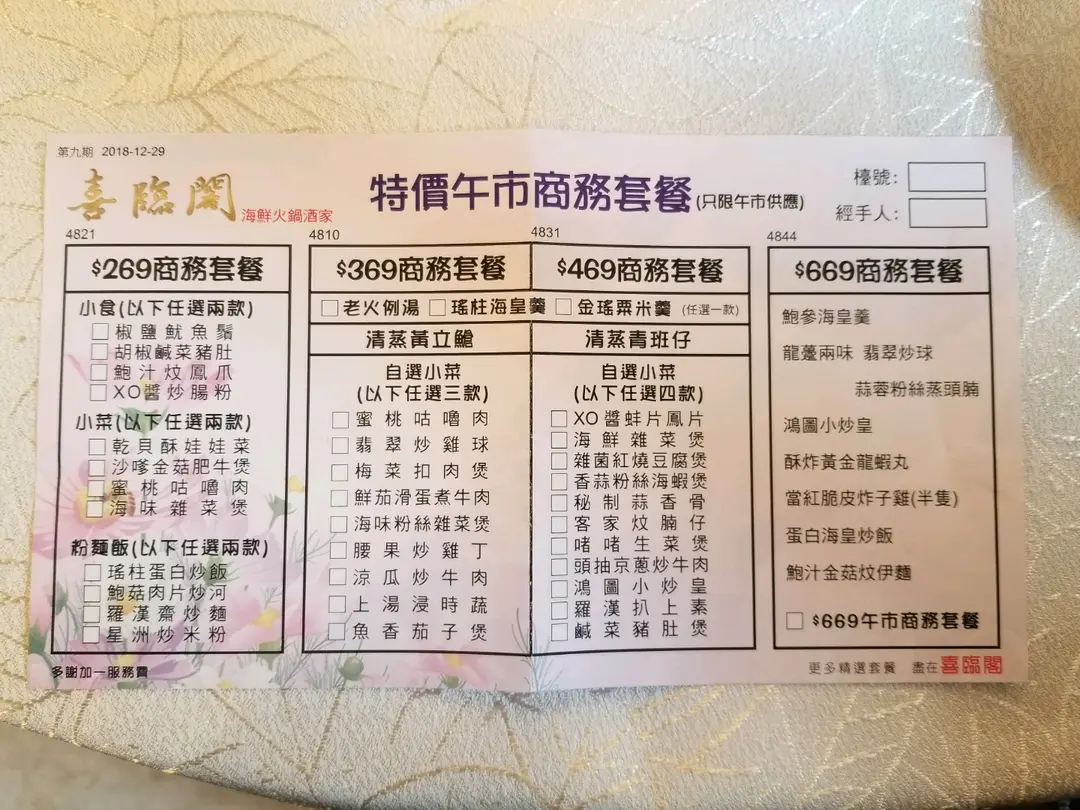 第九期 2018-12-29
喜臨閣
海鮮火鍋酒家
特價午市商務套餐(只限午市供應)
檯號:
經手人:
4821
$269商務套餐
小食(以下任選兩款)
椒鹽魷魚鬚
胡椒鹹菜豬肚
鮑汁炆鳳爪
XO醬炒腸粉
小菜(以下任選兩款)
乾貝酥娃娃菜
沙嗲金菇肥牛煲
蜜桃咕嚕肉
海味雜菜煲
粉麵飯(以下任選兩款)
瑤柱蛋白炒飯
鮑菇肉片炒河
羅漢齋炒麵
星洲炒米粉
多謝加一服務費
4810
4831
$369商務套餐
$469商務套餐
老火例湯 瑤柱海皇羹 金瑤粟米羹 (任選一款)
清蒸黃立鱠
自選小菜
(以下任選三款)
蜜桃咕嚕肉
翡翠炒雞球
梅菜扣肉煲
鮮茄滑蛋煮牛肉
海味粉絲雜菜煲
腰果炒雞丁
涼瓜炒牛肉
上湯浸時蔬
魚香茄子煲
清蒸青班仔
自選小菜
(以下任選四款)
XO醬蚌片鳳片
海鮮雜菜煲
雜菌紅燒豆腐煲
香蒜粉絲海蝦煲
秘制蒜香骨
客家炆腩仔
啫啫生菜煲
頭抽京蔥炒牛肉
鴻圖小炒皇
羅漢扒上素
鹹菜豬肚煲
4844
$669商務套餐
鮑參海皇羹
龍躉兩味 翡翠炒球
蒜蓉粉絲蒸頭腩
鴻圖小炒皇
酥炸黃金龍蝦丸
當紅脆皮炸子雞(半隻)
蛋白海皇炒飯
鮑汁金菇炆伊麵
$669午市商務套餐
更多精選套餐 盡在喜臨閣